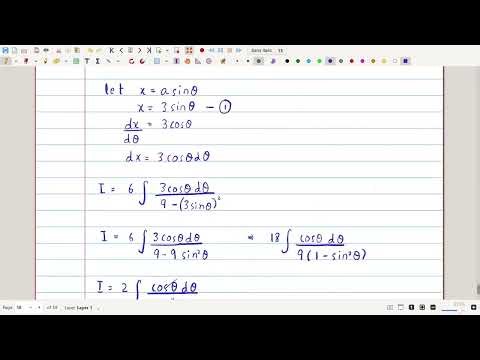 let x = a sinθ
x = 3 sinθ — ①
dx/dθ = 3cosθ
dx = 3cosθdθ
I = 6 ∫ 3cosθ dθ / 9 - (3sinθ)²
I = 6 ∫ 3cosθdθ / 9 - 9 sin²θ = 18 ∫ cosθ dθ / 9(1 - sin²θ)
I = 2 ∫ cosθ dθ